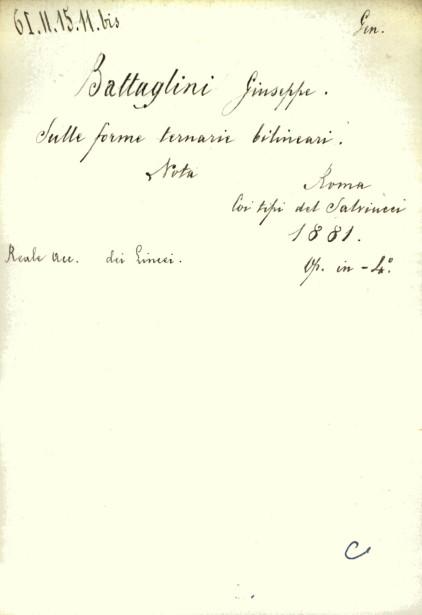 61.II.15.11.bis
Gen.
Battaglini Giuseppe.
Sulle forme ternarie bilineari.
Nota
Roma
Coi tipi del Salviucci
1881.
Reale Acc. dei Lincei.
Op. in-4.°
C